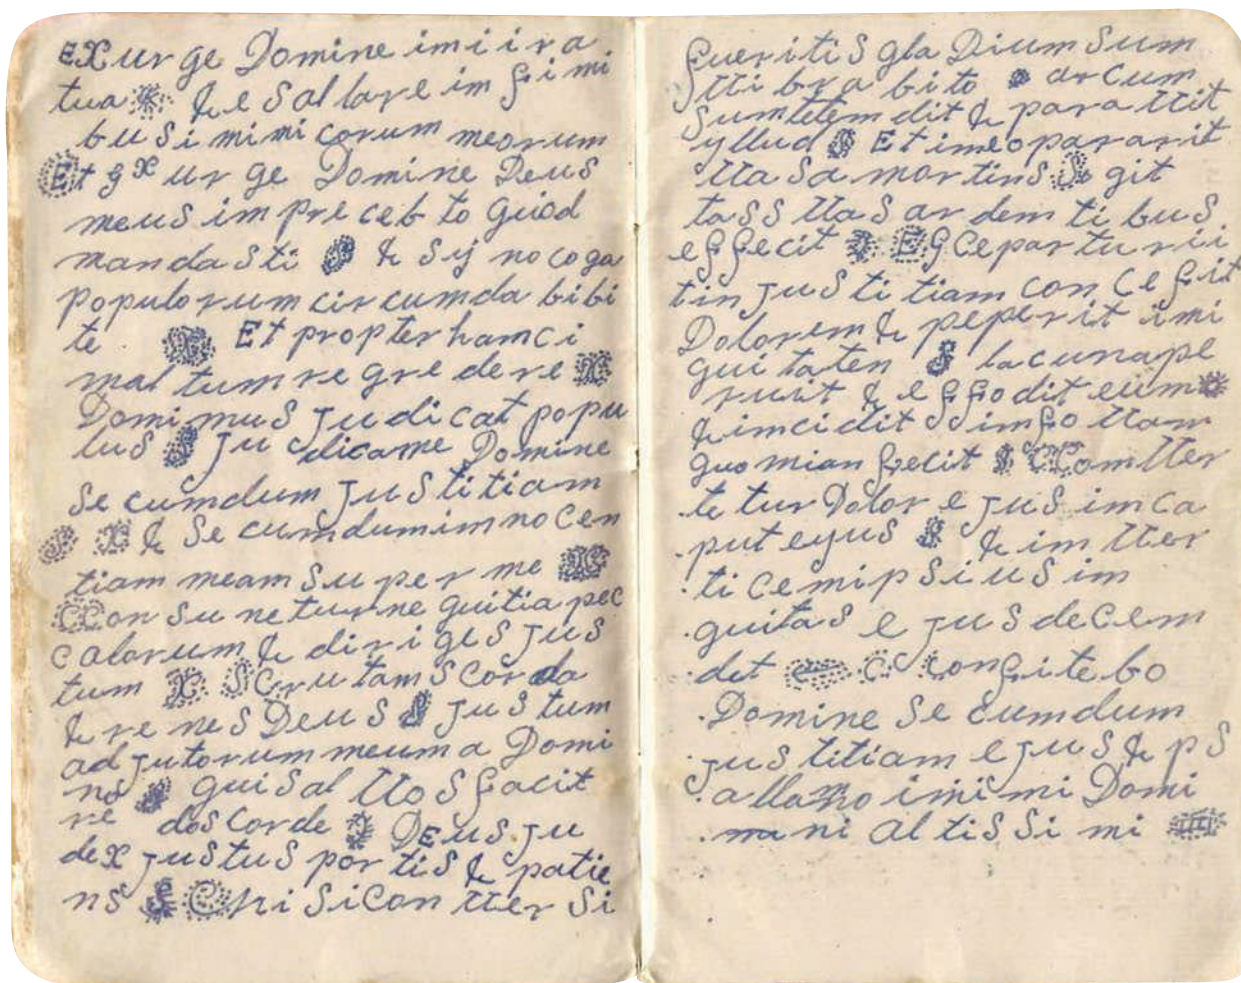 EXurge Domine imi ira
tua & esallare im fimi
busimimi corum meorum
Et gxurge Domine Deus
meus impreceb to quod
mandasti & Sij nocoga
populorum circumdabibi
te Et propter hamci
maltum regredere
Domimus Judicat popu
lus Judicame Domine
Secumdum Justitiam
& Secumdum imnocen
tiam meam Super me
CConsunetur ne quitia pec
catorum & diriges jus
tum Scrutams Corda
& renes Deus Justum
adjutorum meum a Domi
no qui Sal Uos facit
re dos corde DEus ju
dex justus portis & patie
ns & C Ni Si Con Uer Si
fueritis gla Dium Sum
Ui brabito arcum
Sumtetemdit & para Uit
yllud Et imeo pararit
UaSa mortins S git
tass UaS ardemtibus
effecit Egce parturii
tin justitiam concefit
Dolorem & peperit imi
quitaten lacunape
ruit & effodit eum
& imcidit SSimfo Uam
quomian fecit CComUer
tetur Dolor ejus imca
put eyus & im Uer
ticemipsius im
quitas ejus decem
det C confitebo
Domine Secumdum
justitiam ejus & ps
allamo imimi Domi
mani al tissimi